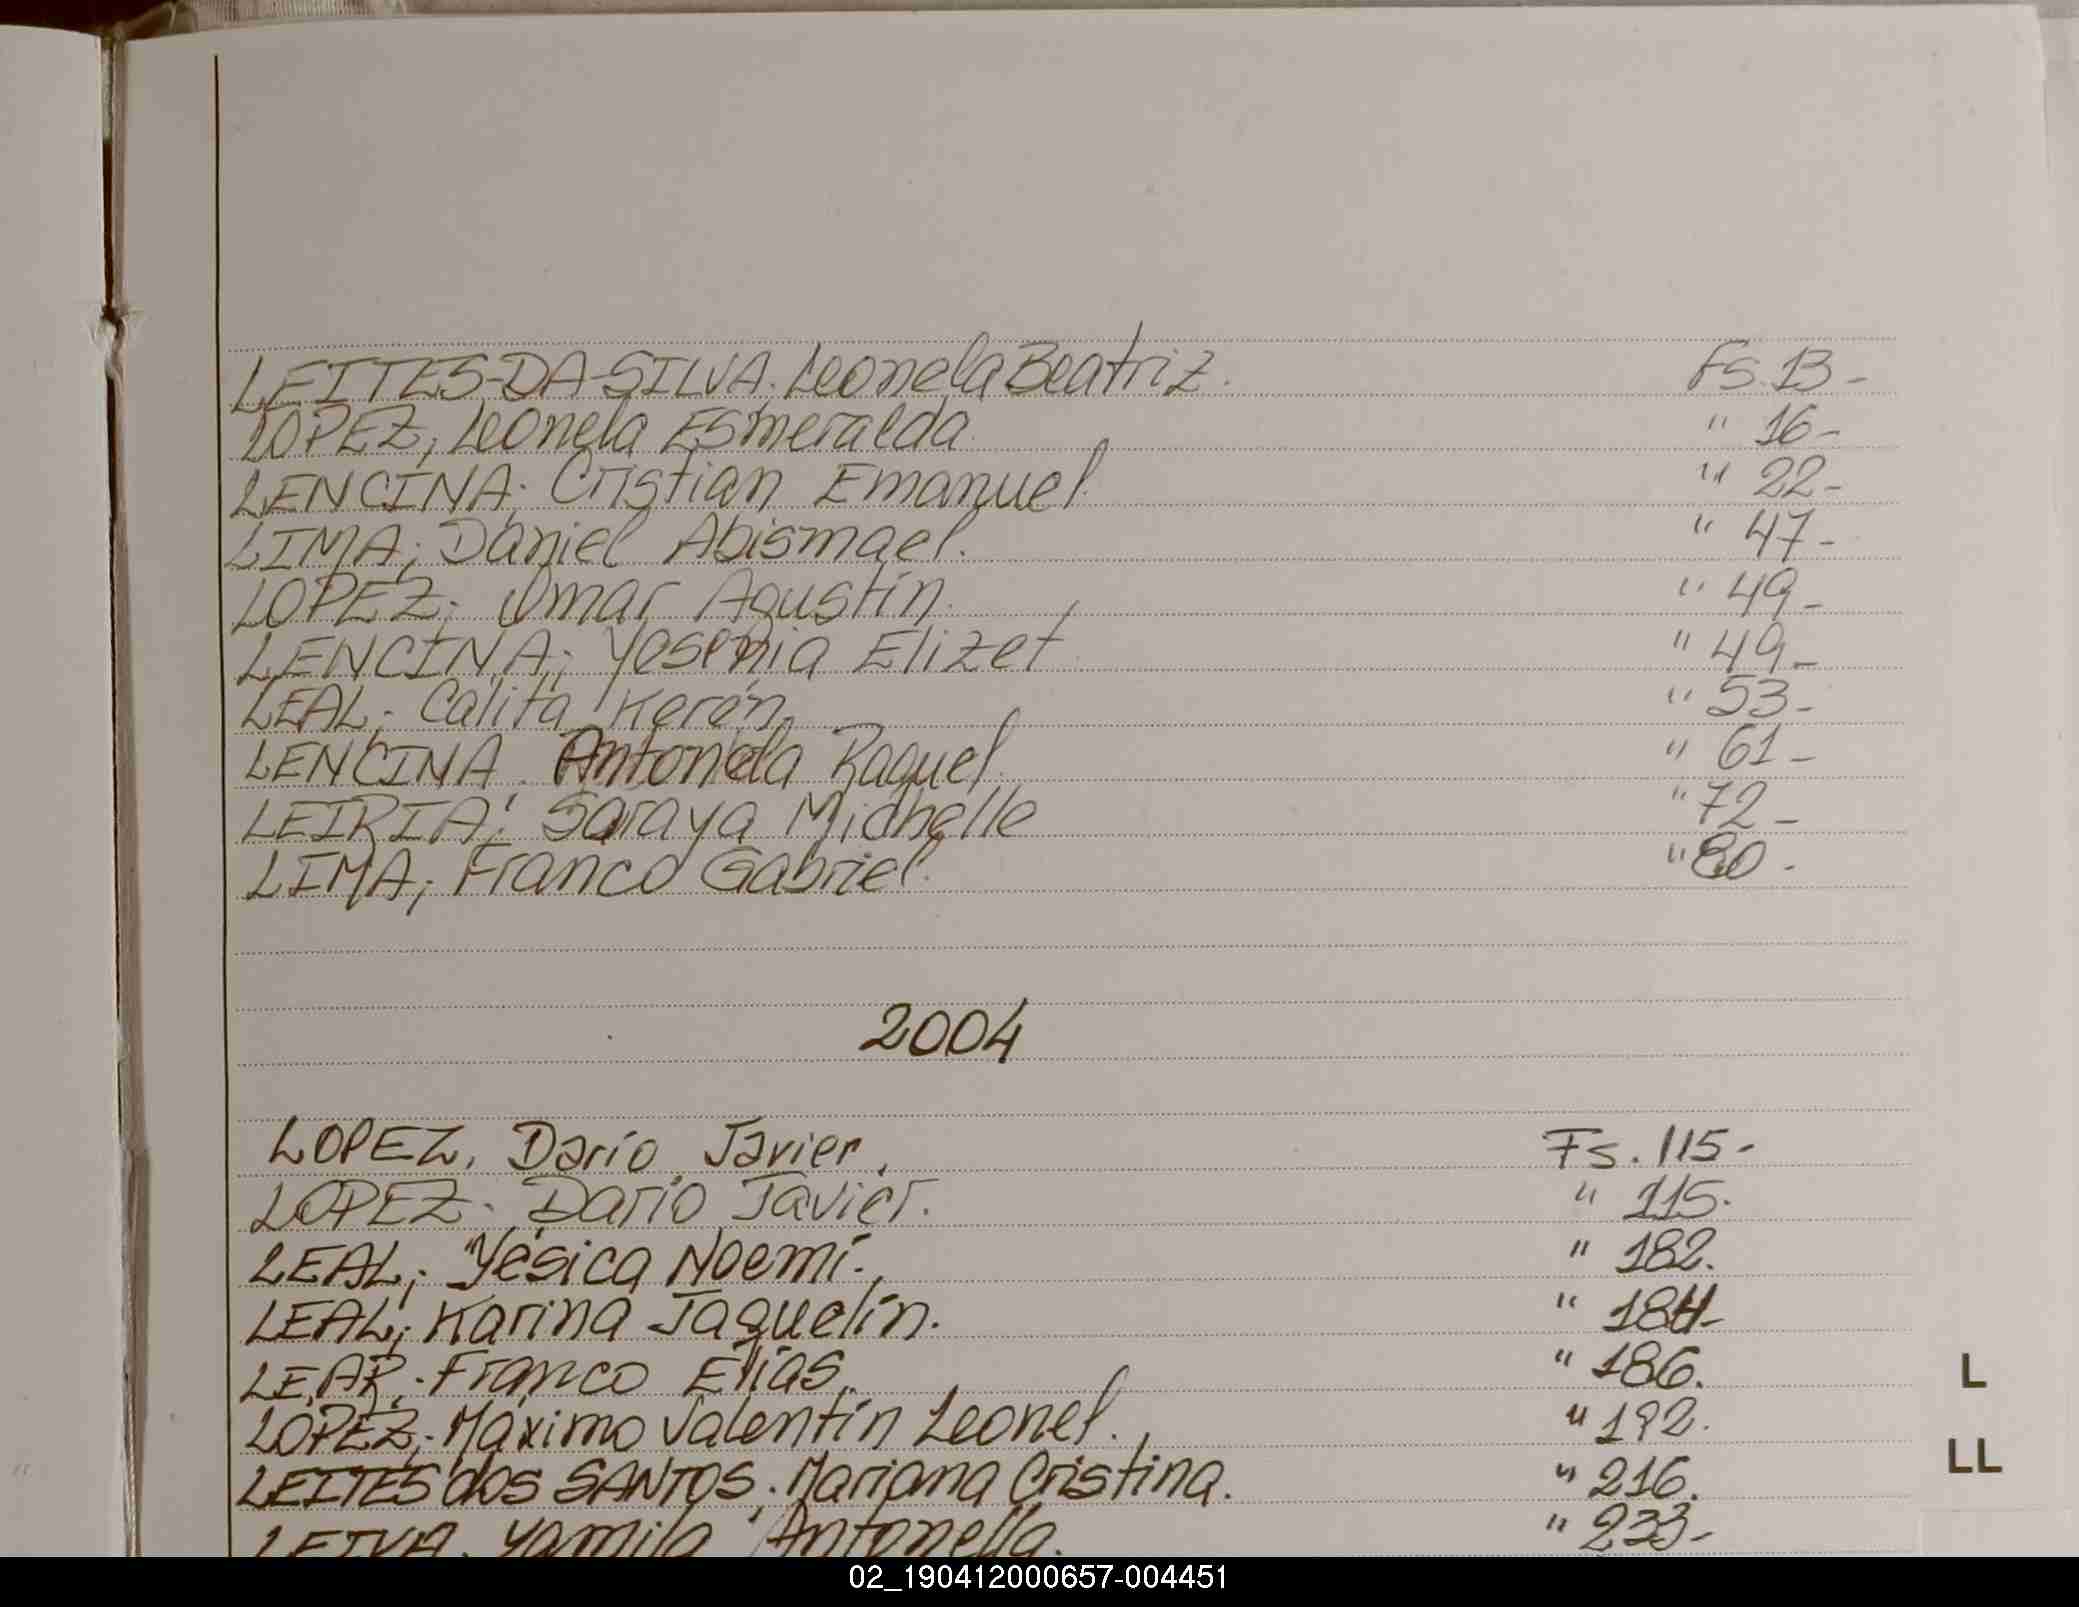 LEITES-DA-SILVA, Leonela Beatriz. Fs. 13-
LOPEZ, Leonela Esmeralda. " 16-
LENCINA; Cristian Emanuel. " 22-
LIMA; Daniel Abismael. " 47-
LOPEZ; Omar Agustín. " 49-
LENCINA; Yesenia Elizet " 49-
LEAL; Calita Keren. " 53-
LENCINA. Antonela Raquel. " 61-
LEIRIA; Saraya Michelle " 72-
LIMA; Franco Gabriel. " 80-
2004
LOPEZ, Darío Javier. Fs. 115-
LOPEZ. Darío Javier. " 115.
LEAL; Yésica Noemí. " 182.
LEAL; Karina Jaquelín. " 184-
LEAR; Franco Elías. " 186.
LOPEZ; Máximo Valentín Leonel. " 192.
LEITES dos SANTOS. Mariana Cristina. " 216.
LEIVA. Yamila Antonella. " 233-
L
LL
02_190412000657-004451